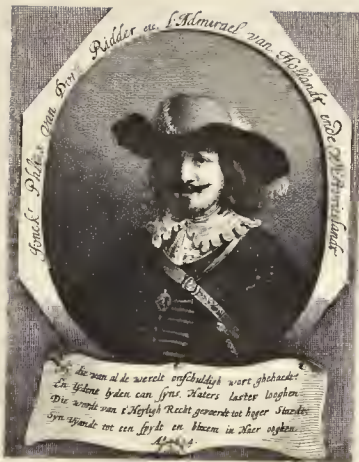 Jonckr Philips van Dorp Ridder etc. L. Admirael van Hollandt ende West-Vrieslandt
die van al de werelt onschuldigh wort ghehaedt:
En lydend lyden can syns Haters laster looghen
Die wordt van t'Heyligh Recht gevoerdt tot hoger Staedt
Syn Vyandt tot een spydt en bloem in Haer ooghen